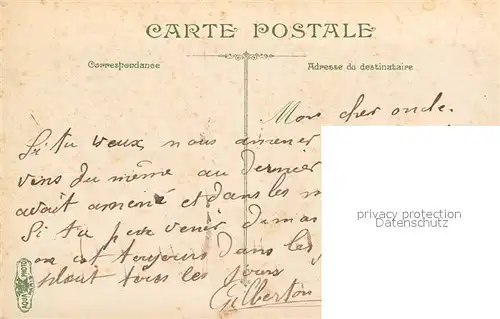 CARTE POSTALE
Correspondance
Adresse du destinataire
Mon cher oncle.
Si tu veux nous amener
vins du même au dernier
avait amené et dans les
Si tu peux venir
on est toujours dans les
plait tous les jours
Gilberton
privacy protection
www.bartko-reher.de
AQUA PHOTO